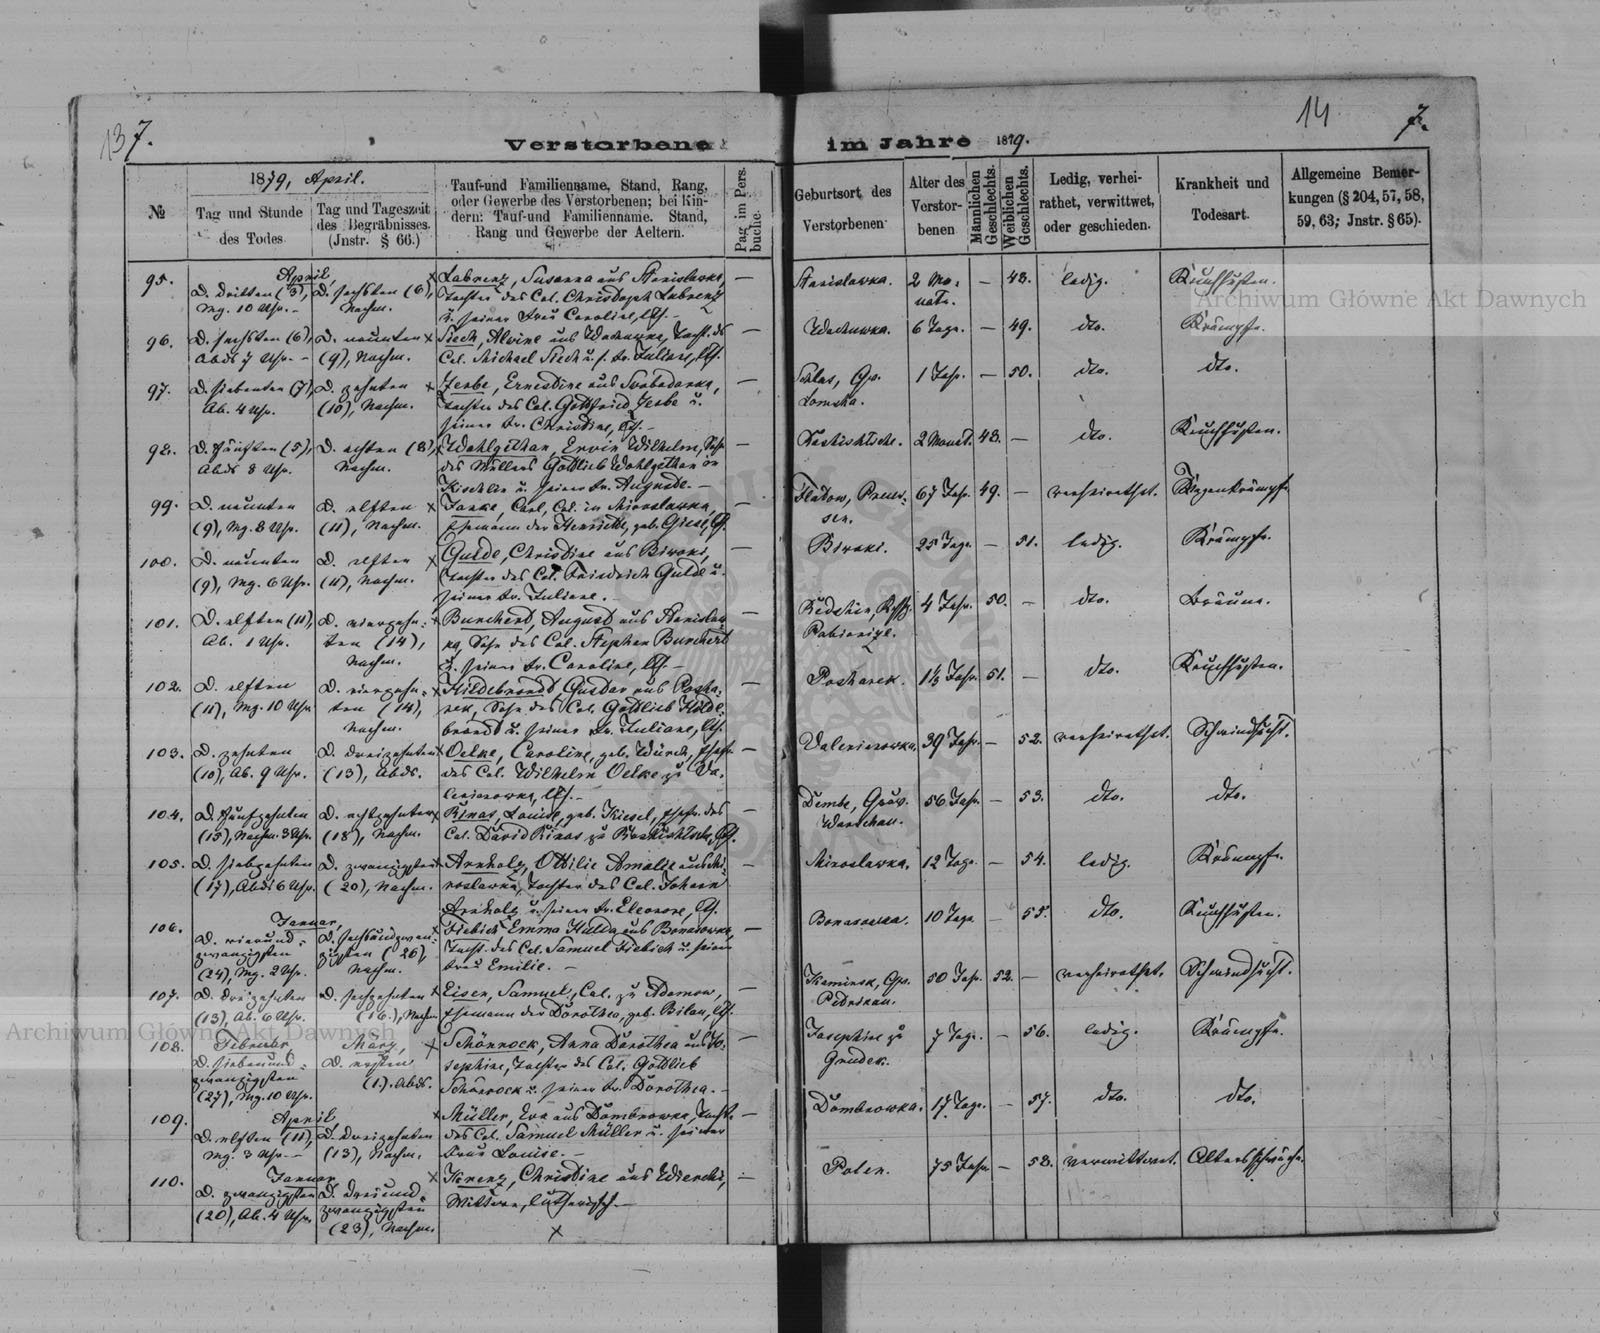 137.
Verstorbene im Jahre 1879.
14
7.
№
1879, April.
Tag und Stunde des Todes.
Tag und Tageszeit des Begräbnisses. (Jnstr. § 66.)
Tauf-und Familienname, Stand, Rang, oder Gewerbe des Verstorbenen; bei Kindern: Tauf-und Familienname. Stand, Rang und Gewerbe der Aeltern.
Pag. im Pers. buche.
Geburtsort des Verstorbenen
Alter des Verstorbenen
Männlichen Geschlechts.
Weiblichen Geschlechts.
Ledig, verheirathet, verwittwet, oder geschieden.
Krankheit und Todesart.
Allgemeine Bemerkungen (§ 204, 57, 58, 59, 63; Jnstr. § 65).
95.
April,
D. dritten (3), D. sechsten (6), Labrenz, Susanna aus Stanislawka, — Stanislawka. 2 Mo- — 48. ledig. Keuchhusten.
Mg. 10 Uhr. Nachm. Tochter des Col. Christoph Labrenz nate.
u. seiner Frau Caroline,
96. D. sechsten (6), D. neunten Siech, Alvine aus Tocht. ds — 6 Tage. — 49. dto. Krämpfe.
Abds 7 Uhr. (9), Nachm. Col. Michael Siech u. s. Fr. Juliane,
97. D. siebenten (7), D. zehnten Zerbe, Ernestine aus — Gv. 1 Jahr. — 50. dto. dto.
Ab. 4 Uhr. (10), Nachm. Tochter des Col. Gottfried Zerbe u. Lomscha.
seiner Fr. Christine,
98. D. fünften (5), D. achten (8), Wohlgethan, Erwin Wilhelm, Sohn — 2 Monat. 48. — dto. Keuchhusten.
Abds 8 Uhr. Nachm. des Müllers Gottlieb Wohlgethan in
u. seiner Fr. Auguste.
99. D. neunten D. elften Janke, Carl, Col. in Miroslawka, — Flatow, Preus- 67 Jahr. 49. — verheirathet. Magenkrämpfe.
(9), Mg. 8 Uhr. (11), Nachm. Ehemann der Henriette, geb. Giese, sen.
100. D. neunten D. elften Gulde, Christine aus — 25 Tage. — 51. ledig. Krämpfe.
(9), Mg. 6 Uhr. (11), Nachm. Tochter des Col. Friedrich Gulde u.
seiner Fr. Juliane.
101. D. elften (11), D. vierzehn- Burcherd, August aus Stanislaw- — 4 Jahr. 50. — dto. Bräune.
Ab. 1 Uhr. ten (14), ka, Sohn des Col. Stephan Burcherd
Nachm. u. seiner Fr. Caroline,
102. D. elften D. vierzehn- Hildebrandt, Gustav aus Posha- — Posharek. 1½ Jahr. 51. — dto. Keuchhusten.
(11), Mg. 10 Uhr. ten (14), rek, Sohn des Col. Gottlieb Hilde-
Nachm. brandt u. seiner Fr. Juliane,
103. D. zehnten D. dreizehnten Oelke, Caroline, geb. Ehefr. — Valerianowka. 39 Jahr. — 52. verheirathet. Schwindsucht.
(10), Ab. 9 Uhr. (13), Abds. des Col. Wilhelm Oelke zu Va-
lerianowka,
104. D. fünfzehnten D. achtzehnten Rinas, Louise, geb. Kiesel, Ehefr. des — Dembe, Gouv. 56 Jahr. — 53. dto. dto.
(15), Nachm. 3 Uhr. (18), Nachm. Col. David Rinas zu Warschau.
105. D. siebzehnten D. zwanzigsten Arnholz, Ottilie Amalie aus Mi- — Miroslawka. 12 Tage. — 54. ledig. Krämpfe.
(17), Abds 6 Uhr. (20), Nachm. roslawka, Tochter des Col. Johann
Arnholz u. seiner Fr. Eleonore,
106. Januar,
D. vierund- D. sechsundzwan- Fiebich Emma Hulda aus — 10 Tage. — 55. dto. Keuchhusten.
zwanzigsten zigsten (26), Tocht. des Col. Samuel Fiebich u. seiner
(24), Mg. 2 Uhr. Nachm. Frau Emilie.
107. D. dreizehnten D. sechzehnten Eisen, Samuel, Col. zu Adamow, — Kaminsk, Gv. 50 Jahr. 52. — verheirathet. Schwindsucht.
(13), Ab. 6 Uhr. (16.), Nachm. Ehemann der Dorothea, geb. Bilau, Petrikau.
108. Februar März,
D. siebenund- D. ersten Schönrock, Anna Dorothea aus Jo- Josephine zu 7 Tage. — 56. ledig. Krämpfe.
zwanzigsten (1.), Abds. sephine, Tochter des Col. Gottlieb Grudek.
(27), Mg. 10 Uhr. Schönrock u. seiner Fr. Dorothea.
109. April
D. elften (11), D. dreizehnten Müller, Eva aus Dombrowka, Tocht. — Dombrowka. 17 Tage. — 57. dto. dto.
Mg. 3 Uhr. (13), Nachm. des Col. Samuel Müller u. seiner
Frau Louise.
110. Januar
D. zwanzigsten D. dreiund- Korenz, Christine aus — Polen. 75 Jahr. — 58. verwittwet. Altersschwäche.
(20), Ab. 4 Uhr. zwanzigsten Wittwe, lutherisch.
(23), Nachm.
Archiwum Główne Akt Dawnych
Archiwum Główne Akt Dawnych